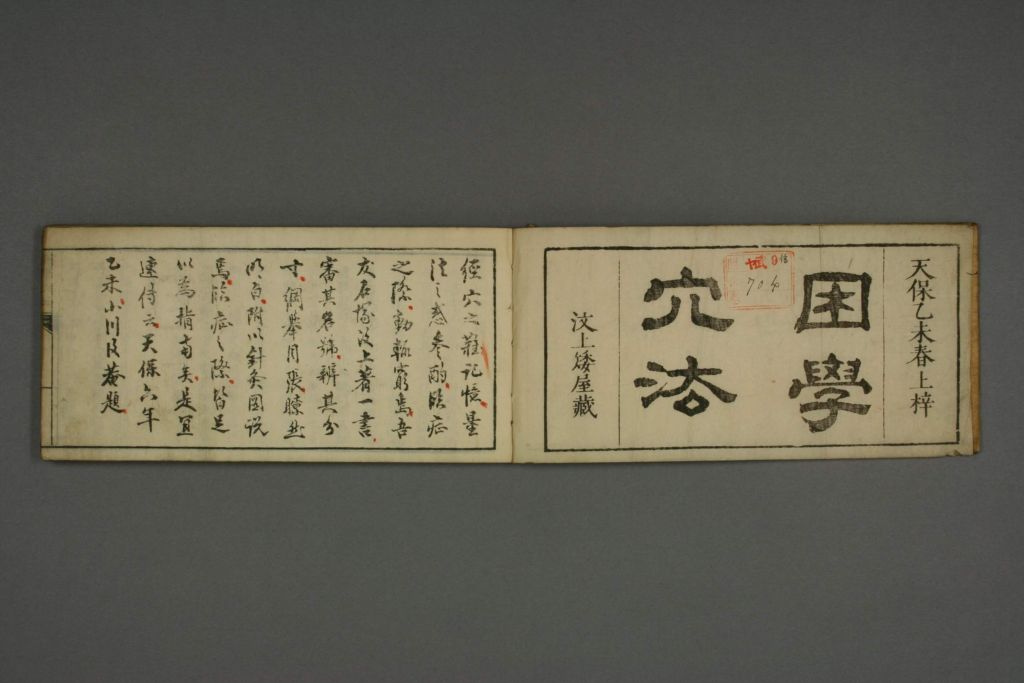 天保乙未春上梓
困學
穴法
汶上矮屋藏
9
70
經穴之難記憶量
注之惑參酌臨症
之際動輒窮焉吾
友石 汶上著一書
審其名號辨其分
寸綱舉目張瞭然
明白附以針灸圖說
焉臨症之際皆足
以為指南矣是宜
速侍云天保六年
乙未小川 菴題